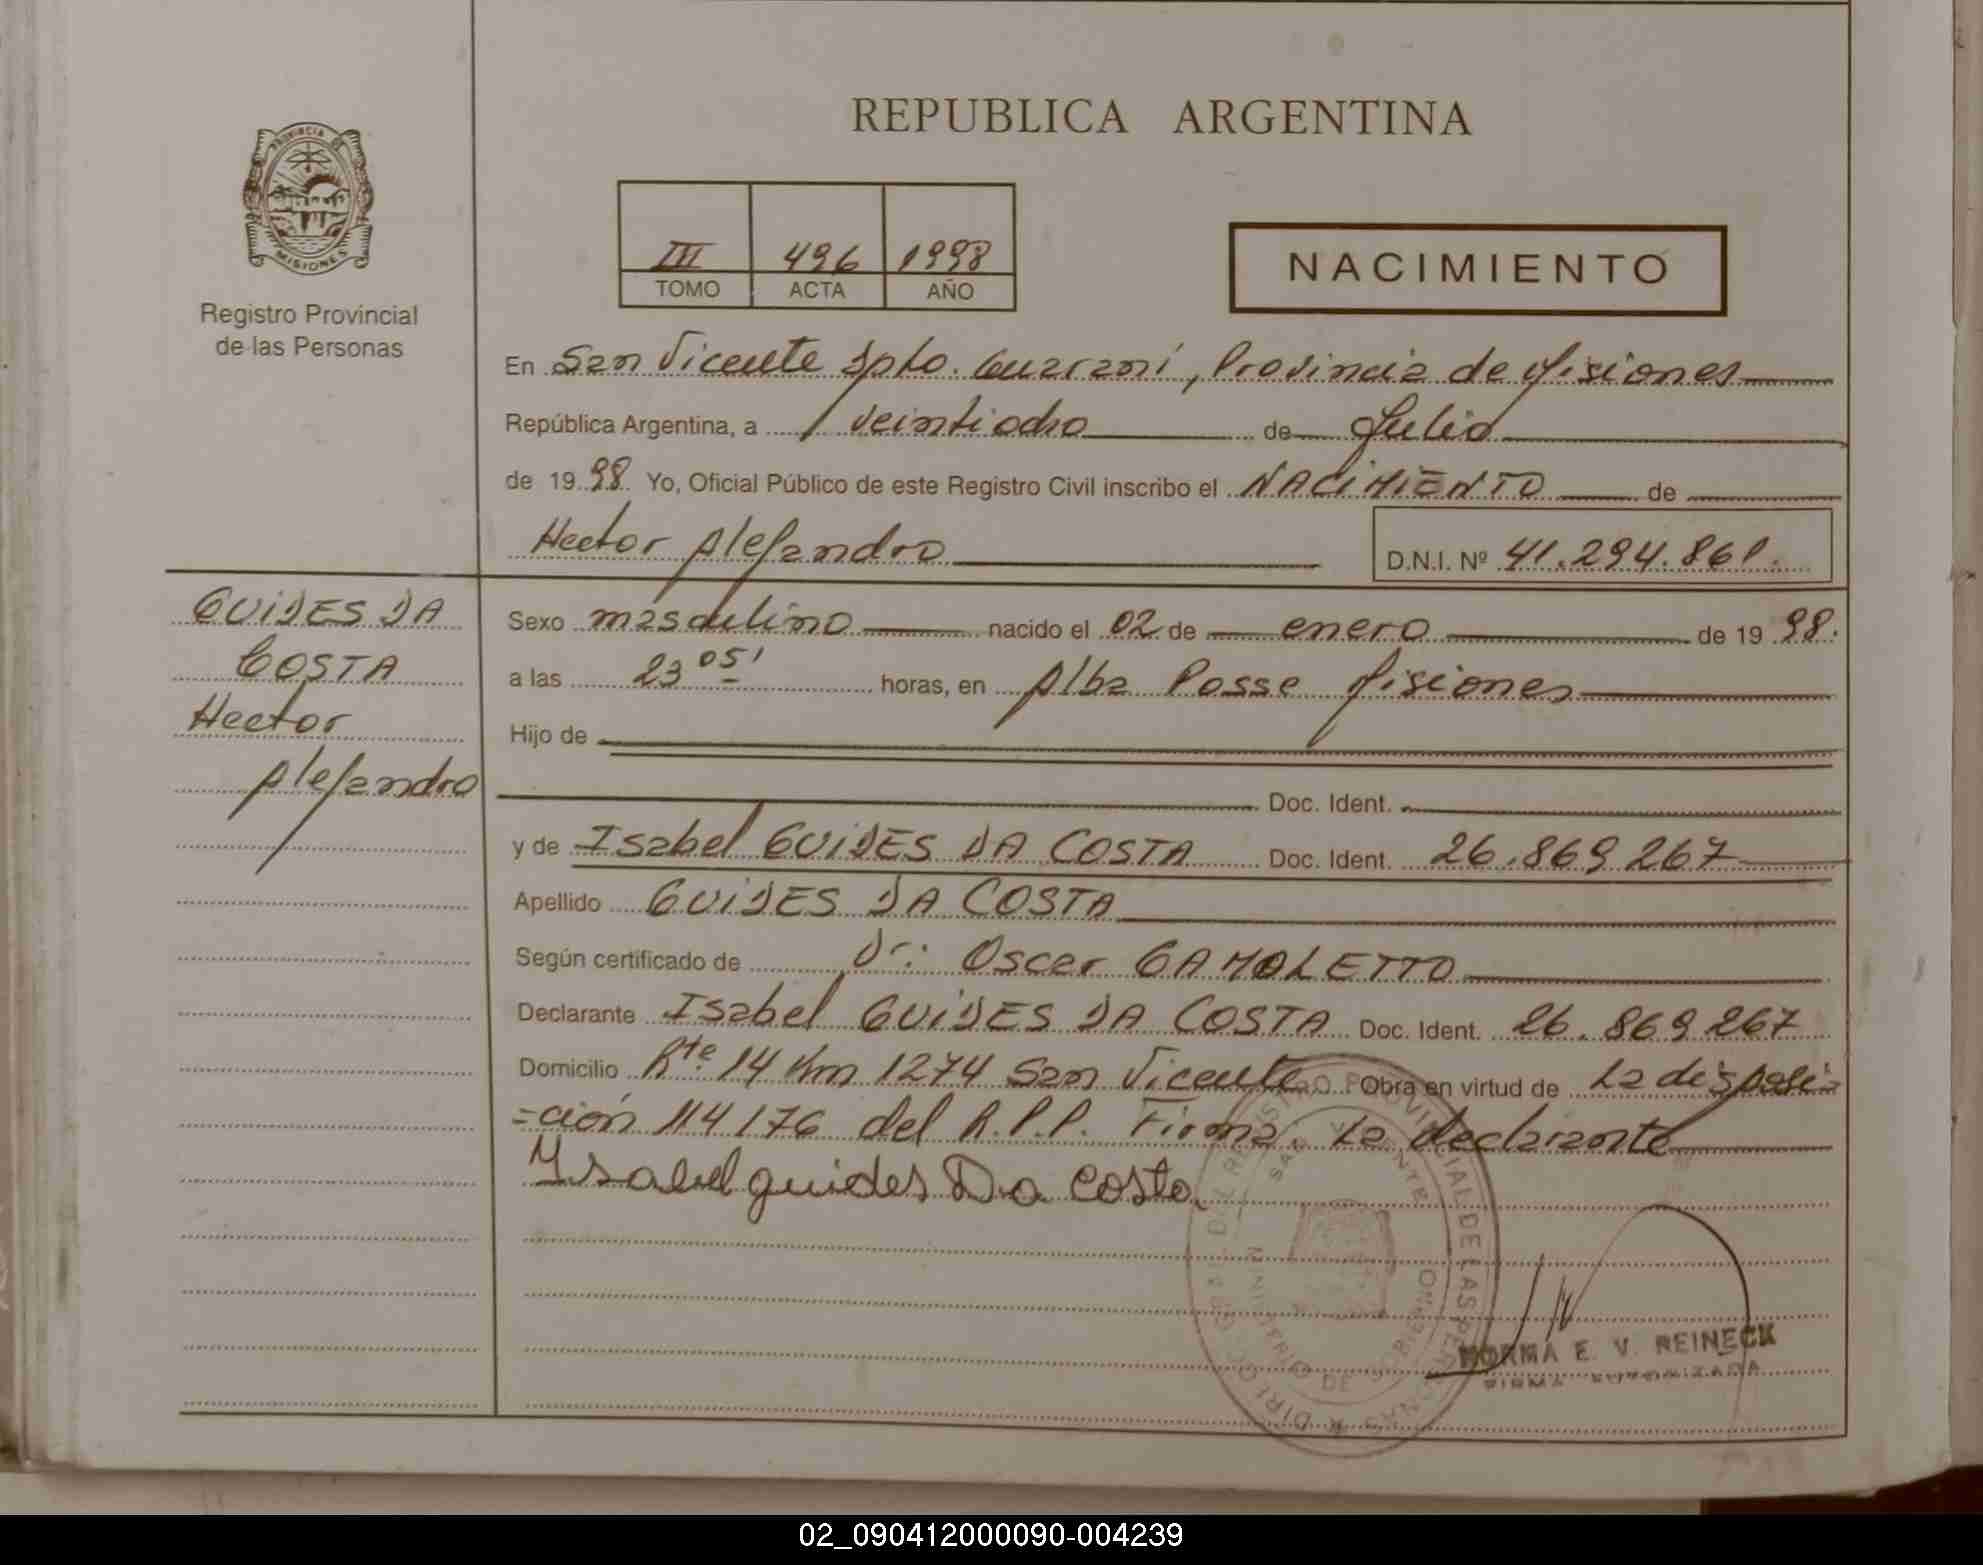 REPUBLICA ARGENTINA
PROVINCIA DE
MISIONES
Registro Provincial
de las Personas
III 496 1998
TOMO ACTA AÑO
NACIMIENTO
En San Vicente Dpto. Guaraní, Provincia de Misiones
República Argentina, a veintiocho de Julio
de 1998 Yo, Oficial Público de este Registro Civil inscribo el NACIMIENTO de
Hector Alejandro D.N.I. Nº 41.294.861.
GUIDES DA
COSTA
Hector
Alejandro
Sexo masculino nacido el 02 de enero de 1998.
a las 23 05' horas, en Alba Posse Misiones
Hijo de
Doc. Ident.
y de Isabel GUIDES DA COSTA Doc. Ident. 26.869.267
Apellido GUIDES DA COSTA
Según certificado de Dr: Oscar GAMOLETTO
Declarante Isabel GUIDES DA COSTA Doc. Ident. 26.869.267
Domicilio Rte. 14 Km 1274 San Vicente Obra en virtud de La disposi-
=ción 114/76 del R.P.P. Firma La declarante
Isabel guides Da Costa
DIRECC. GRAL. DEL REGISTRO PROVINCIAL DE LAS PERSONAS
SAN VICENTE
MINISTERIO DE GOBIERNO
NORMA E. V. REINECK
FIRMA AUTORIZADA
02_090412000090-004239